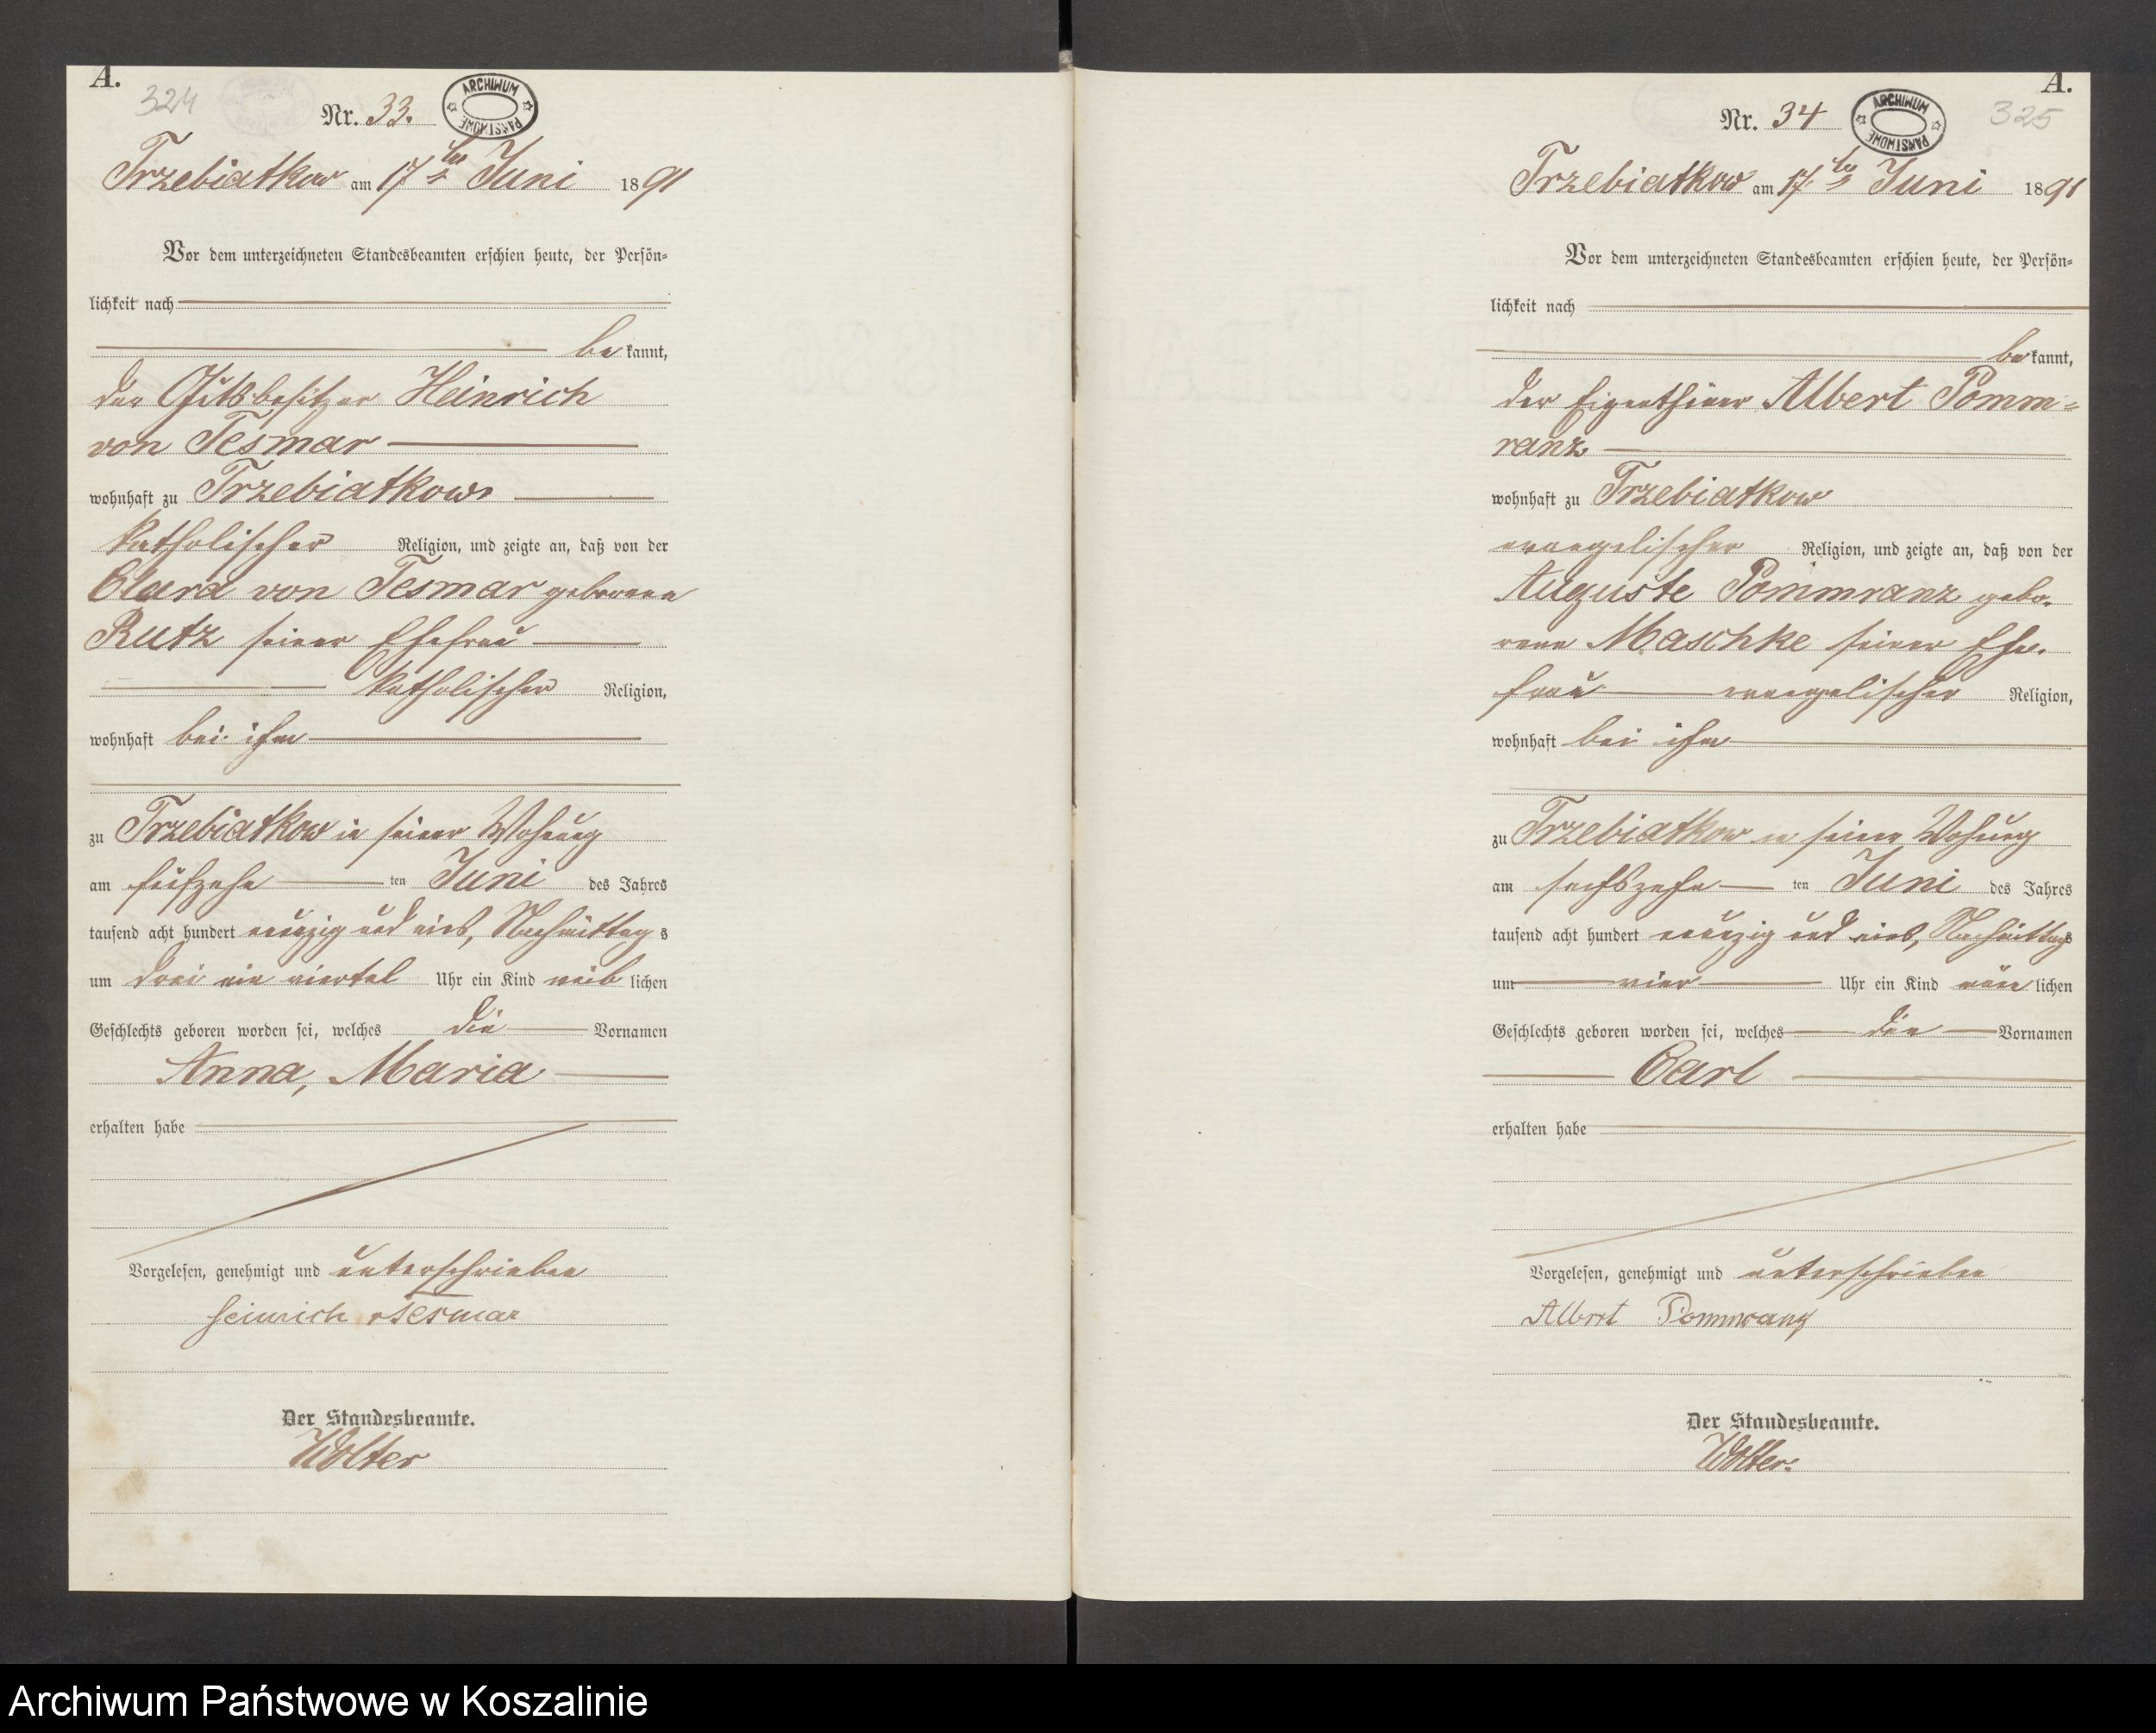 A.
324
Nr. 33.
ARCHIWUM PAŃSTWOWE
Trzebiatkow am 17ten Juni 1891
Vor dem unterzeichneten Standesbeamten erschien heute, der Persön=
lichkeit nach
be kannt,
der Gutsbesitzer Heinrich
von Tesmar
wohnhaft zu Trzebiatkow
katholischer Religion, und zeigte an, daß von der
Clara von Tesmar geborenen
Rutz seiner Ehefrau
katholischer Religion,
wohnhaft bei ihm
zu Trzebiatkow in seiner Wohnung
am fünfzehn ten Juni des Jahres
tausend acht hundert neunzig und eins, Nachmittag s
um drei ein viertel Uhr ein Kind weib lichen
Geschlechts geboren worden sei, welches die Vornamen
Anna, Maria
erhalten habe
Vorgelesen, genehmigt und unterschrieben
Heinrich v Tesmar
Der Standesbeamte.
Wolter
A.
325
Nr. 34
ARCHIWUM PAŃSTWOWE
Trzebiatkow am 17ten Juni 1891
Vor dem unterzeichneten Standesbeamten erschien heute, der Persön=
lichkeit nach
be kannt,
der Eigenthümer Albert Pomm=
ranz
wohnhaft zu Trzebiatkow
evangelischer Religion, und zeigte an, daß von der
Auguste Pommranz gebo.
rene Maschke seiner Ehe.
frau evangelischer Religion,
wohnhaft bei ihm
zu Trzebiatkow in seiner Wohnung
am sechszehn ten Juni des Jahres
tausend acht hundert neunzig und eins, Nachmittags
um vier Uhr ein Kind män lichen
Geschlechts geboren worden sei, welches die Vornamen
Carl
erhalten habe
Vorgelesen, genehmigt und unterschrieben
Albert Pommranz
Der Standesbeamte.
Wolter.
Archiwum Państwowe w Koszalinie